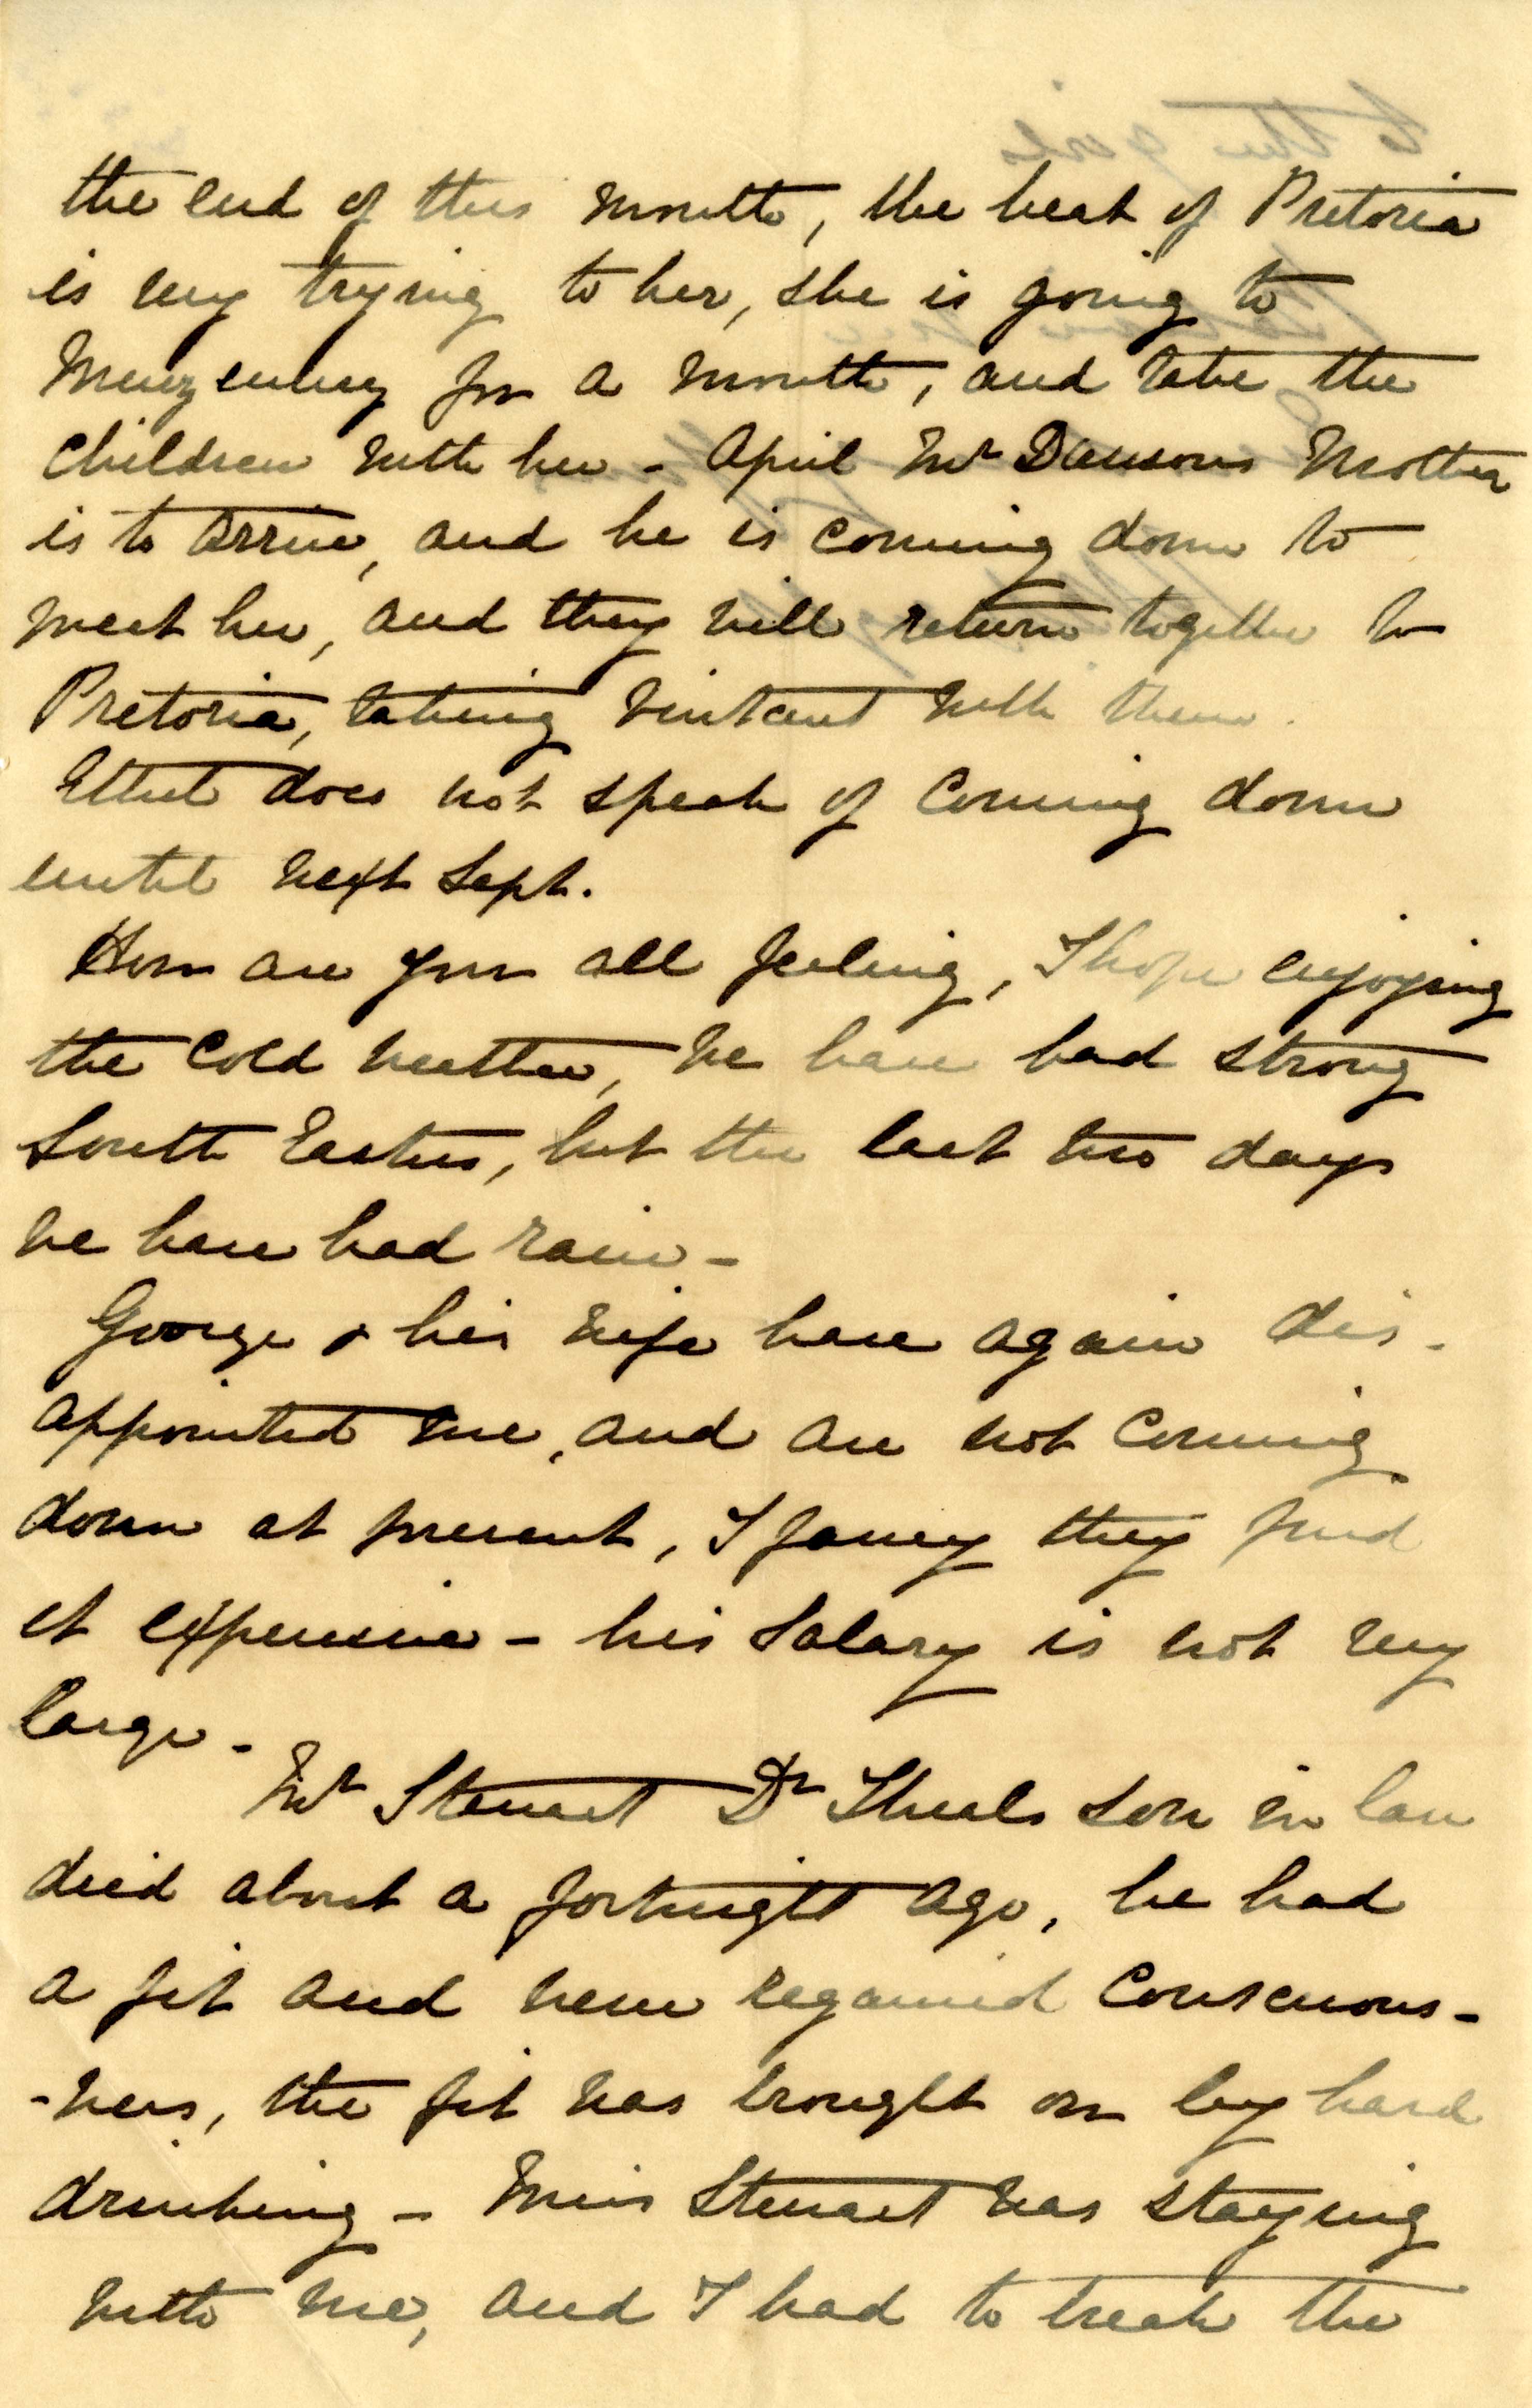 the end of this month, the heat of Pretoria
is very trying to her, she is going to
Muizenburg for a month, and take the
children with her - April Mr Dawsons Mother
is to arrive, and he is coming down to
meet her, and they will return together to
Pretoria, taking Vintcent with them.
Ethel does not speak of coming down
until next Sept.
How are you all feeling, I hope enjoying
the cold weather, we have had strong
South Easters, but the last two days
we have had rain -
George & his wife have again dis-
appointed me, and are not coming
down at present, I fancy they find
it expensive - his Salary is not very
large -
Mr Stewart Dr Theals son in law
died about a fortnight ago, he had
a fit and never regained conscious-
-ness, the fit was brought on by hard
drinking - Miss Stewart was staying
with me, and I had to break the